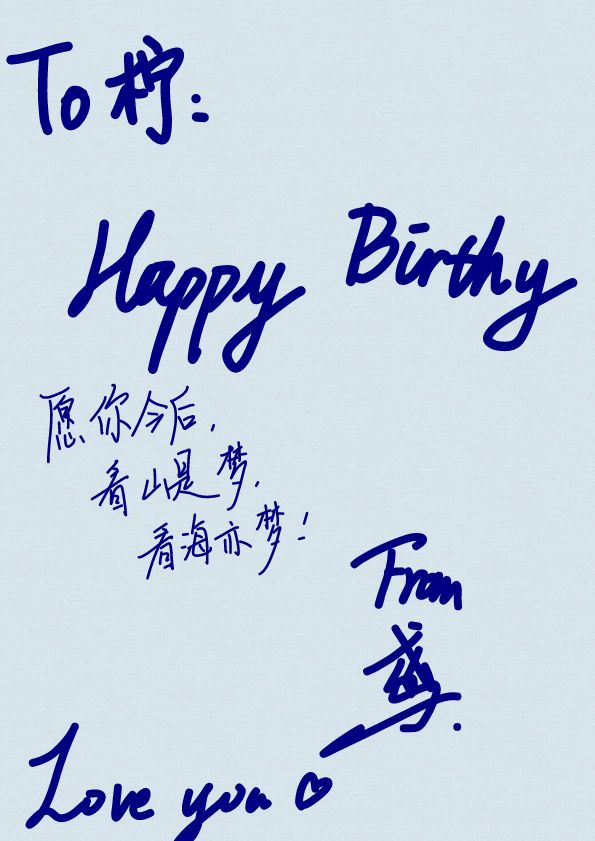 To 柠:
Happy Birthy
愿你今后,
看山是梦,
看海亦梦!
From
Love you ♡